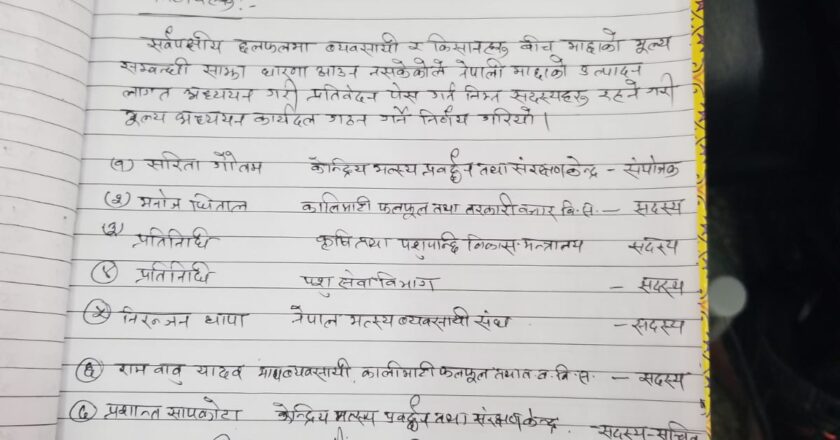 सर्वपक्षीय छलफलमा व्यवसायी र किसानहरू बीच माछाको मूल्य
सम्बन्धी साझा धारणा आउन नसकेकोले नेपाली माछाको उत्पादन
लागत अध्ययन गरी प्रतिवेदन पेस गर्न निम्न सदस्यहरू रहने गरी
मूल्य अध्ययन कार्यदल गठन गर्ने निर्णय गरियो।
(१) सरिता गौतम केन्द्रिय मत्स्य प्रवर्द्धन तथा संरक्षण केन्द्र - संयोजक
(२) मनोज धिताल कालिमाटी फलफूल तथा तरकारी बजार वि.स. - सदस्य
(३) प्रतिनिधि कृषि तथा पशुपन्छि विकास मन्त्रालय सदस्य
(४) प्रतिनिधि पशु सेवा विभाग - सदस्य
(५) निरन्जन थापा नेपाल मत्स्य व्यवसायी संघ - सदस्य
(६) राम बाबु यादव माछा व्यवसायी, कालीमाटी फलफूल तथा त.ब.वि.स. - सदस्य
(७) प्रशान्त सापकोटा केन्द्रिय मत्स्य प्रवर्द्धन तथा संरक्षण केन्द्र - सदस्य-सचिव